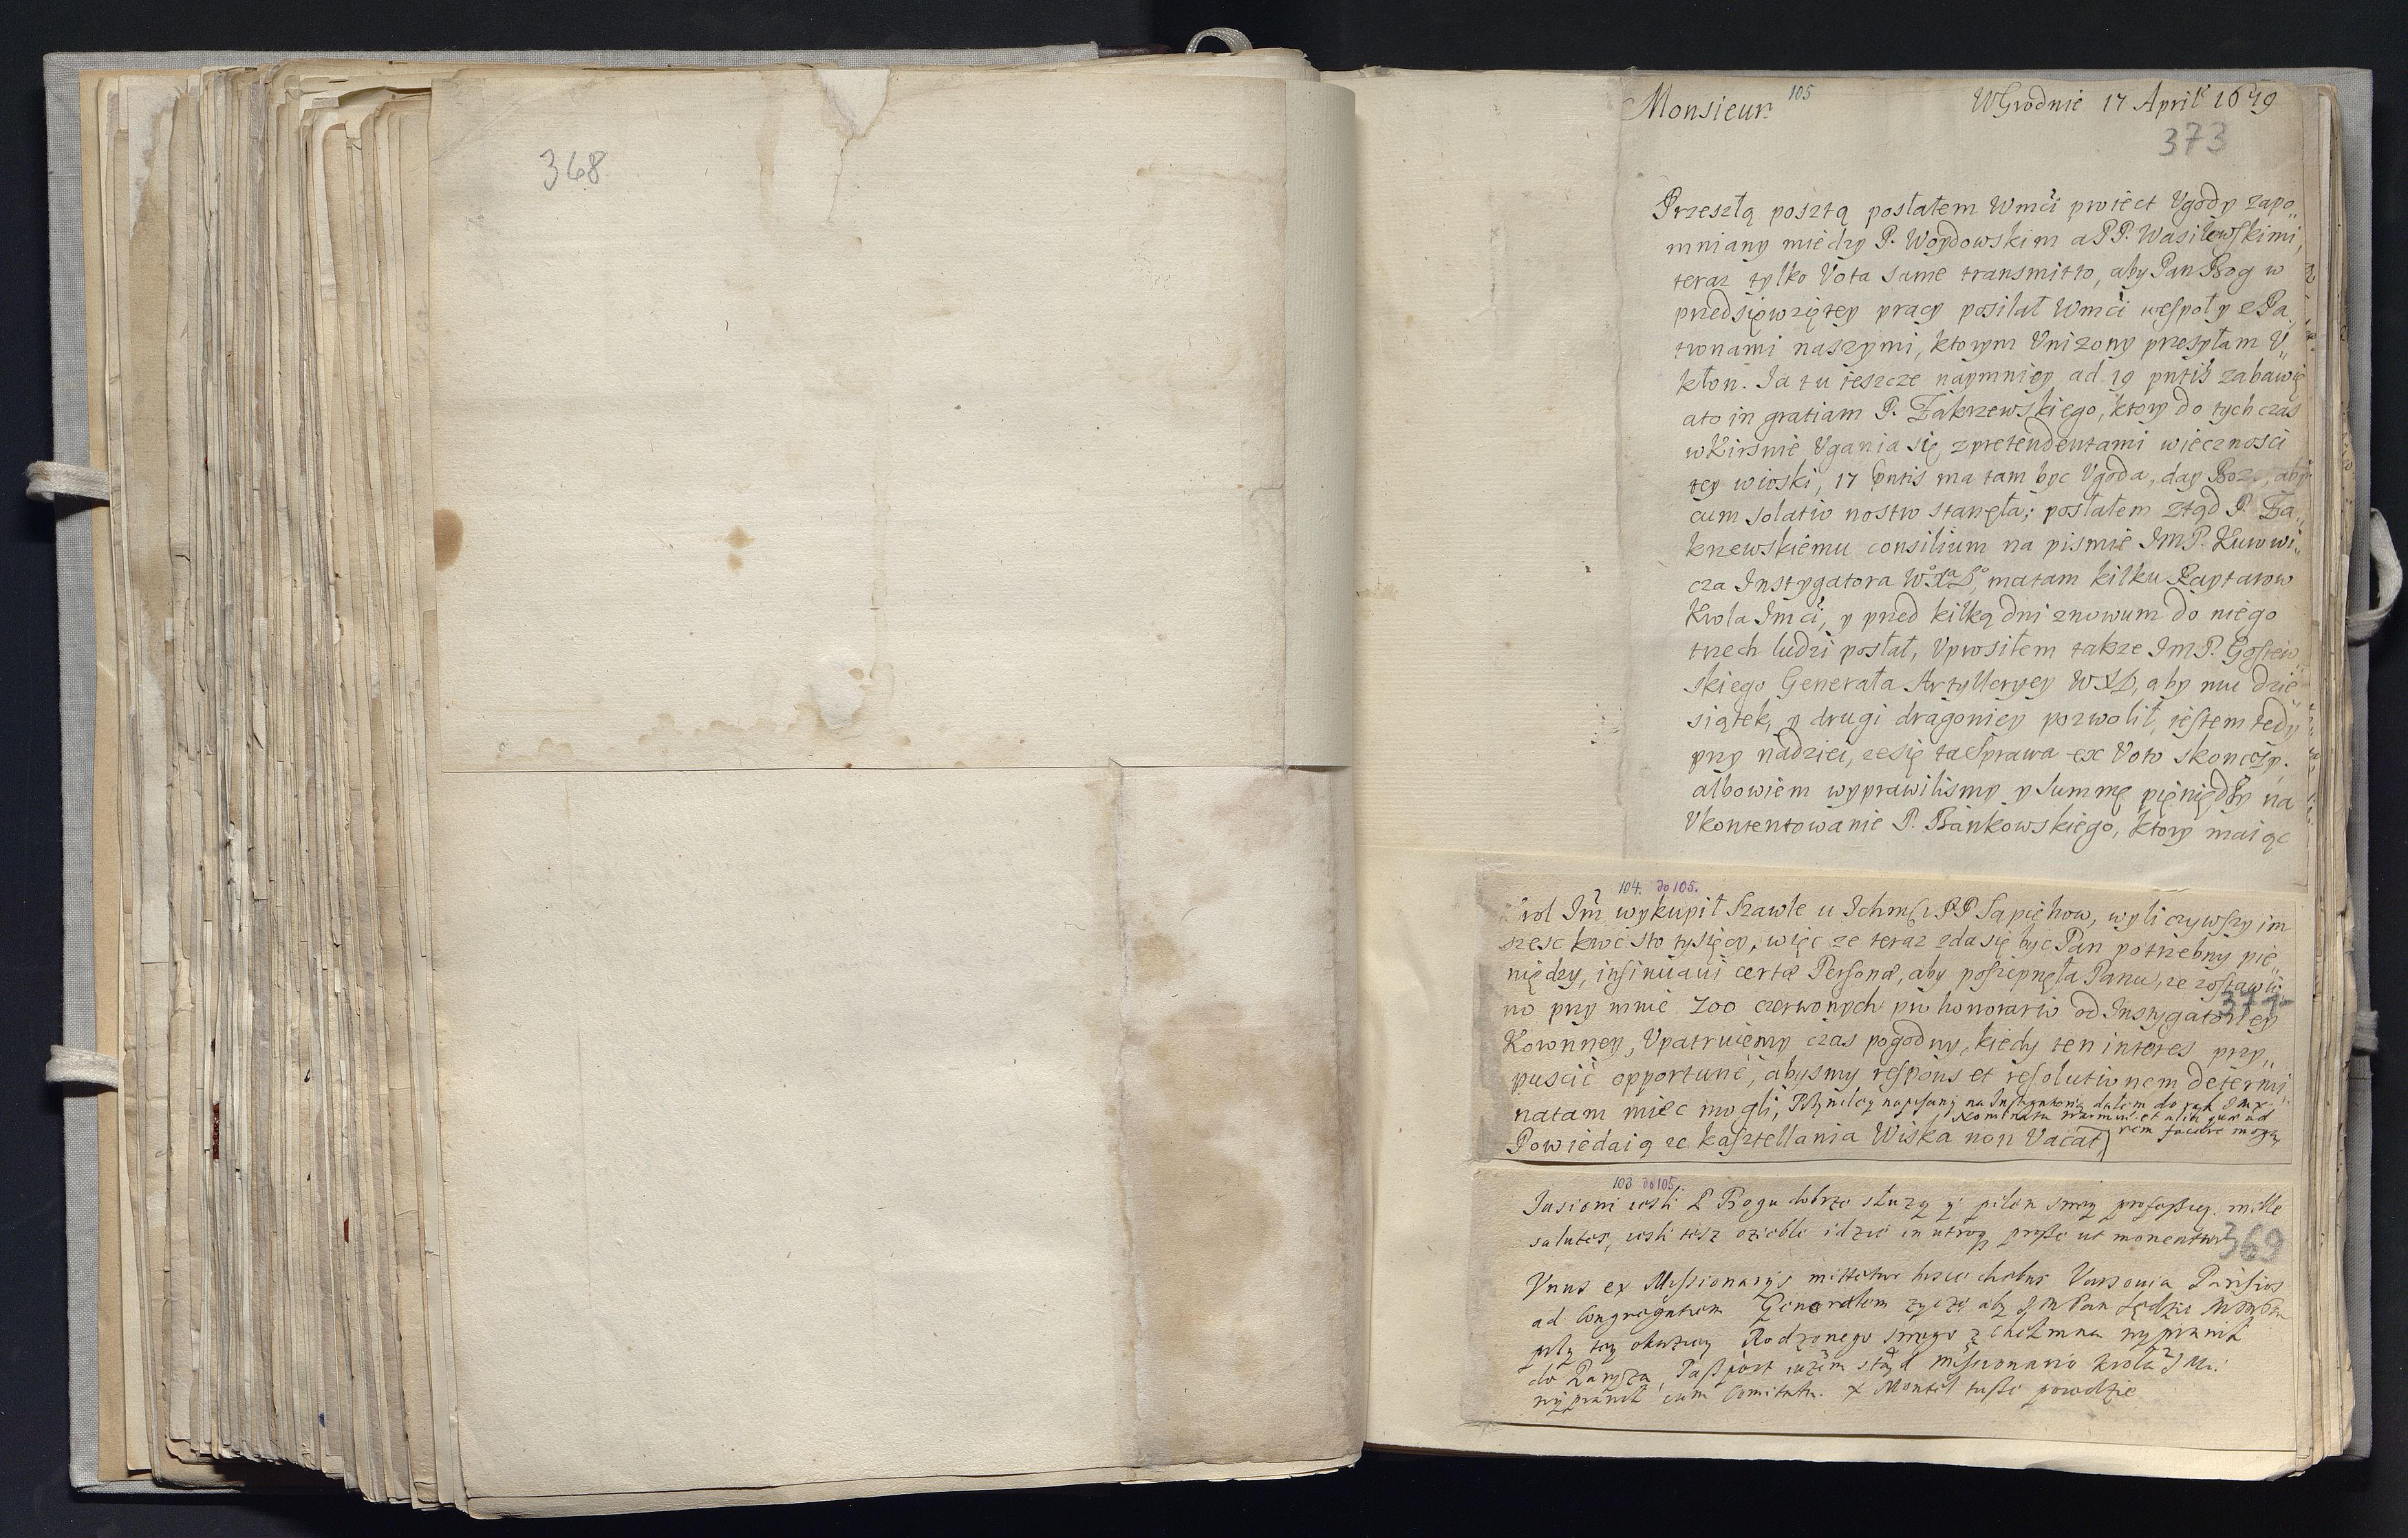 368
Monsieur 105 WGrodnie 17 April 1679
373
Przeszłą posztą posłałem Wmci proiect Vgody zapo„
mniany miedzy P. Woydowskim a PP. Wasilewskimi,
teraz tylko Vota same transmitto, aby Pan Bog w
przedsięwziętey pracy posilał Wmci wespoły z Pa„
tronami naszymi, ktorym Vnizony przesyłam V„
kłon. Ja tu ieszcze naymniey ad 19 pntis zabawię
ato in gratiam P. Zakrzewskiego, ktory do tych czas
wKirsnie Vgania się zpretendentami wiecznosci
tey wioski, 17 pntis ma tam byc Vgoda, day Boze, aby
cum solatio nostro stanęła; posłałem ztąd P. Za„
krzewskiemu consilium na pismie JMP. Kurowi„
cza Instygatora W.X.L. matam kilku Raytarow
Krola Jmci, y przed kilką dni znowum do niego
trzech ludzi posłał, Vprosiłem takze JmP. Gosiew„
skiego Generała Artylleryey WXL, aby mu dzie„
siątek, y drugi dragoniey pozwolił, iestem tedy
przy nadziei, zesię ta Sprawa ex Voto skonczy.
albowiem wyprawilismy y Summę pięniędzy na
Vkontentowanie P. Bankowskiego, ktory maiąc
104. do 105.
Krol Jm wykupił Szawle u Ichmsc PP Sapiehow, wyliczywszy im
szesc kroc sto tysięcy, więc ze teraz zda się byc Pan potrzebny pie„
niędzy, insinuavi certæ Personæ, aby poszepnęła Panu, ze zostawio„
no przy mnie 700 czerwonych pro honorario od Instygatoriey
Koronney, Vpatruięmy czas pogodny, kiedy ten interes przy„
puscić opportune, abysmy respons et resolutionem determi„
natam miec mogli, Przywiley napisany na Instygatorią dałem do rąk JMX
Nominata Warmin: et alii quoad rem facere mogą
Powiedaią ze kasztellania Wiska non Vacat,
103 do 105.
Jasiowi iesli P Bogu dobrze słuzy y pilen swey professiey. mille
salutes, iesli tesz ozieble idzie in utroq proszę ut moneatur
369
Vnus ex Missionarys mittetur hisce diebus Varsovia Parisios
ad Congregationem Generalem zyczę aby JM Pan Sędzia
przy tey okaziey Rodzonego swego z Chełmna wyprawił
do Paryza, Paszport iuzem stąd missionario Krola JMci
wyprawił cum Comitatu. X Montel